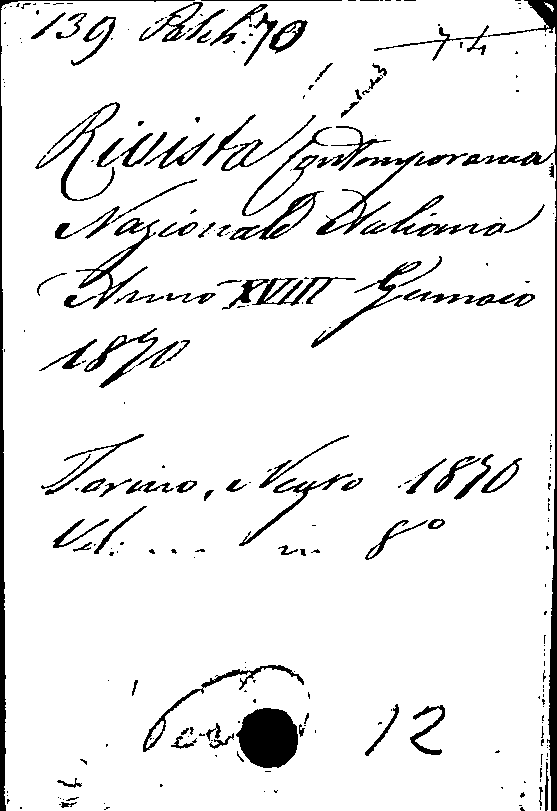 139 Palch. 70 7.4
Rivista Contemporanea
Nazionale Italiana
Anno XVIII Gennaio
1870
Torino, Negro 1870
Vol. ... in 8°
12